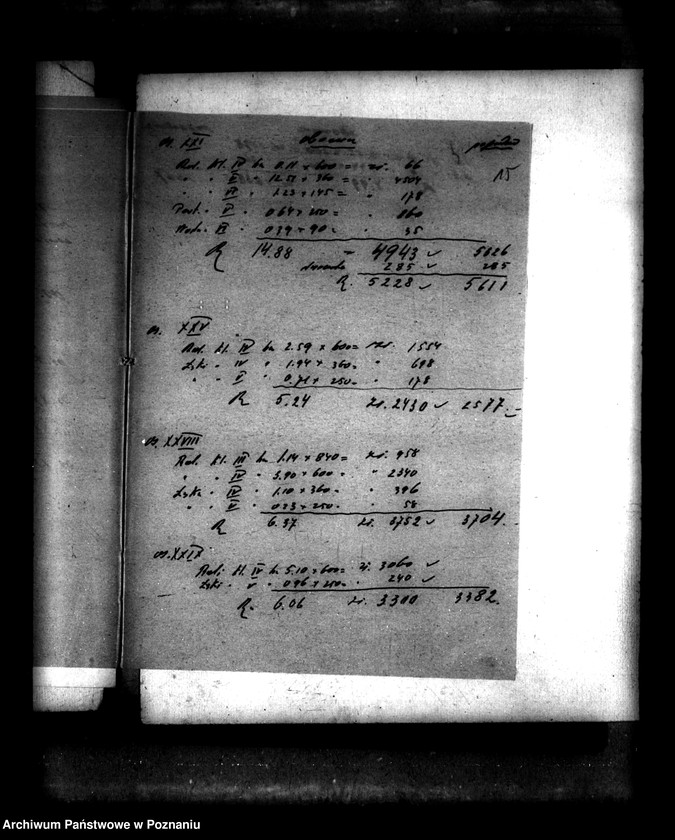 XXI obecna
Rol. kl. IV ha 0.11 × 600 = zł. 66
" " V " 12.51 × 360 = " 4504
" " VI " 1.23 × 145 = " 178
Past. " V " 0.64 × 250 = " 160
" VI " 0.39 × 90 = " 35
15
R 14.88 – 4943 ✓ 5626
285 ✓ 285
R. 5228 ✓ 5611
XXV
Rol. kl. IV ha 2.59 × 600 = zł. 1554
Łąki " IV " 1.94 × 360 = " 698
" V " 0.71 × 250 = " 178
R 5.24 zł. 2430 ✓ 2577.–
XXVIII
Rol. kl. III ha 1.14 × 840 = zł. 958
" " IV " 3.90 × 600 = " 2340
Łąki " IV " 1.10 × 360 = " 396
" " V " 0.23 × 250 = " 58
R 6.37 zł. 3752 ✓ 3704.
XXIX
Roli kl. IV ha 5.10 × 600 = zł. 3060 ✓
Łąki " V " 0.96 × 250 = 240 ✓
R. 6.06 zł. 3300 3382.
Archiwum Państwowe w Poznaniu